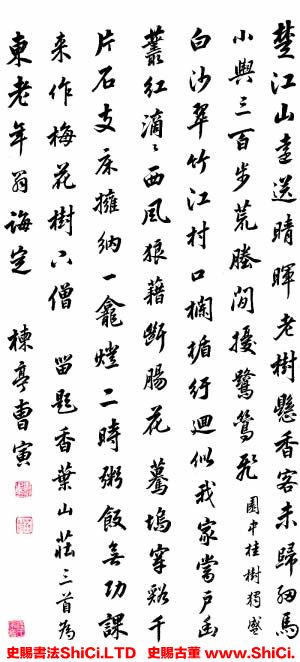 楚江山畫送晴暉老樹懸香客未歸細馬
小輿三百步荒塍間擾鷺鶿飛 園中桂樹獨盛
白沙翠竹江村口欄楯紆迴似我家當戶幽
叢紅滴滴西風狼藉斷腸花 驀塢穿谿千
片石支床擁衲一龕燈二時粥飯無功課
來作梅花樹下僧 留題香葉山莊三首為
東老年翁誨定 楝亭曹寅
史賜書法ShiCi.LTD 史賜古董 ShiCi.com